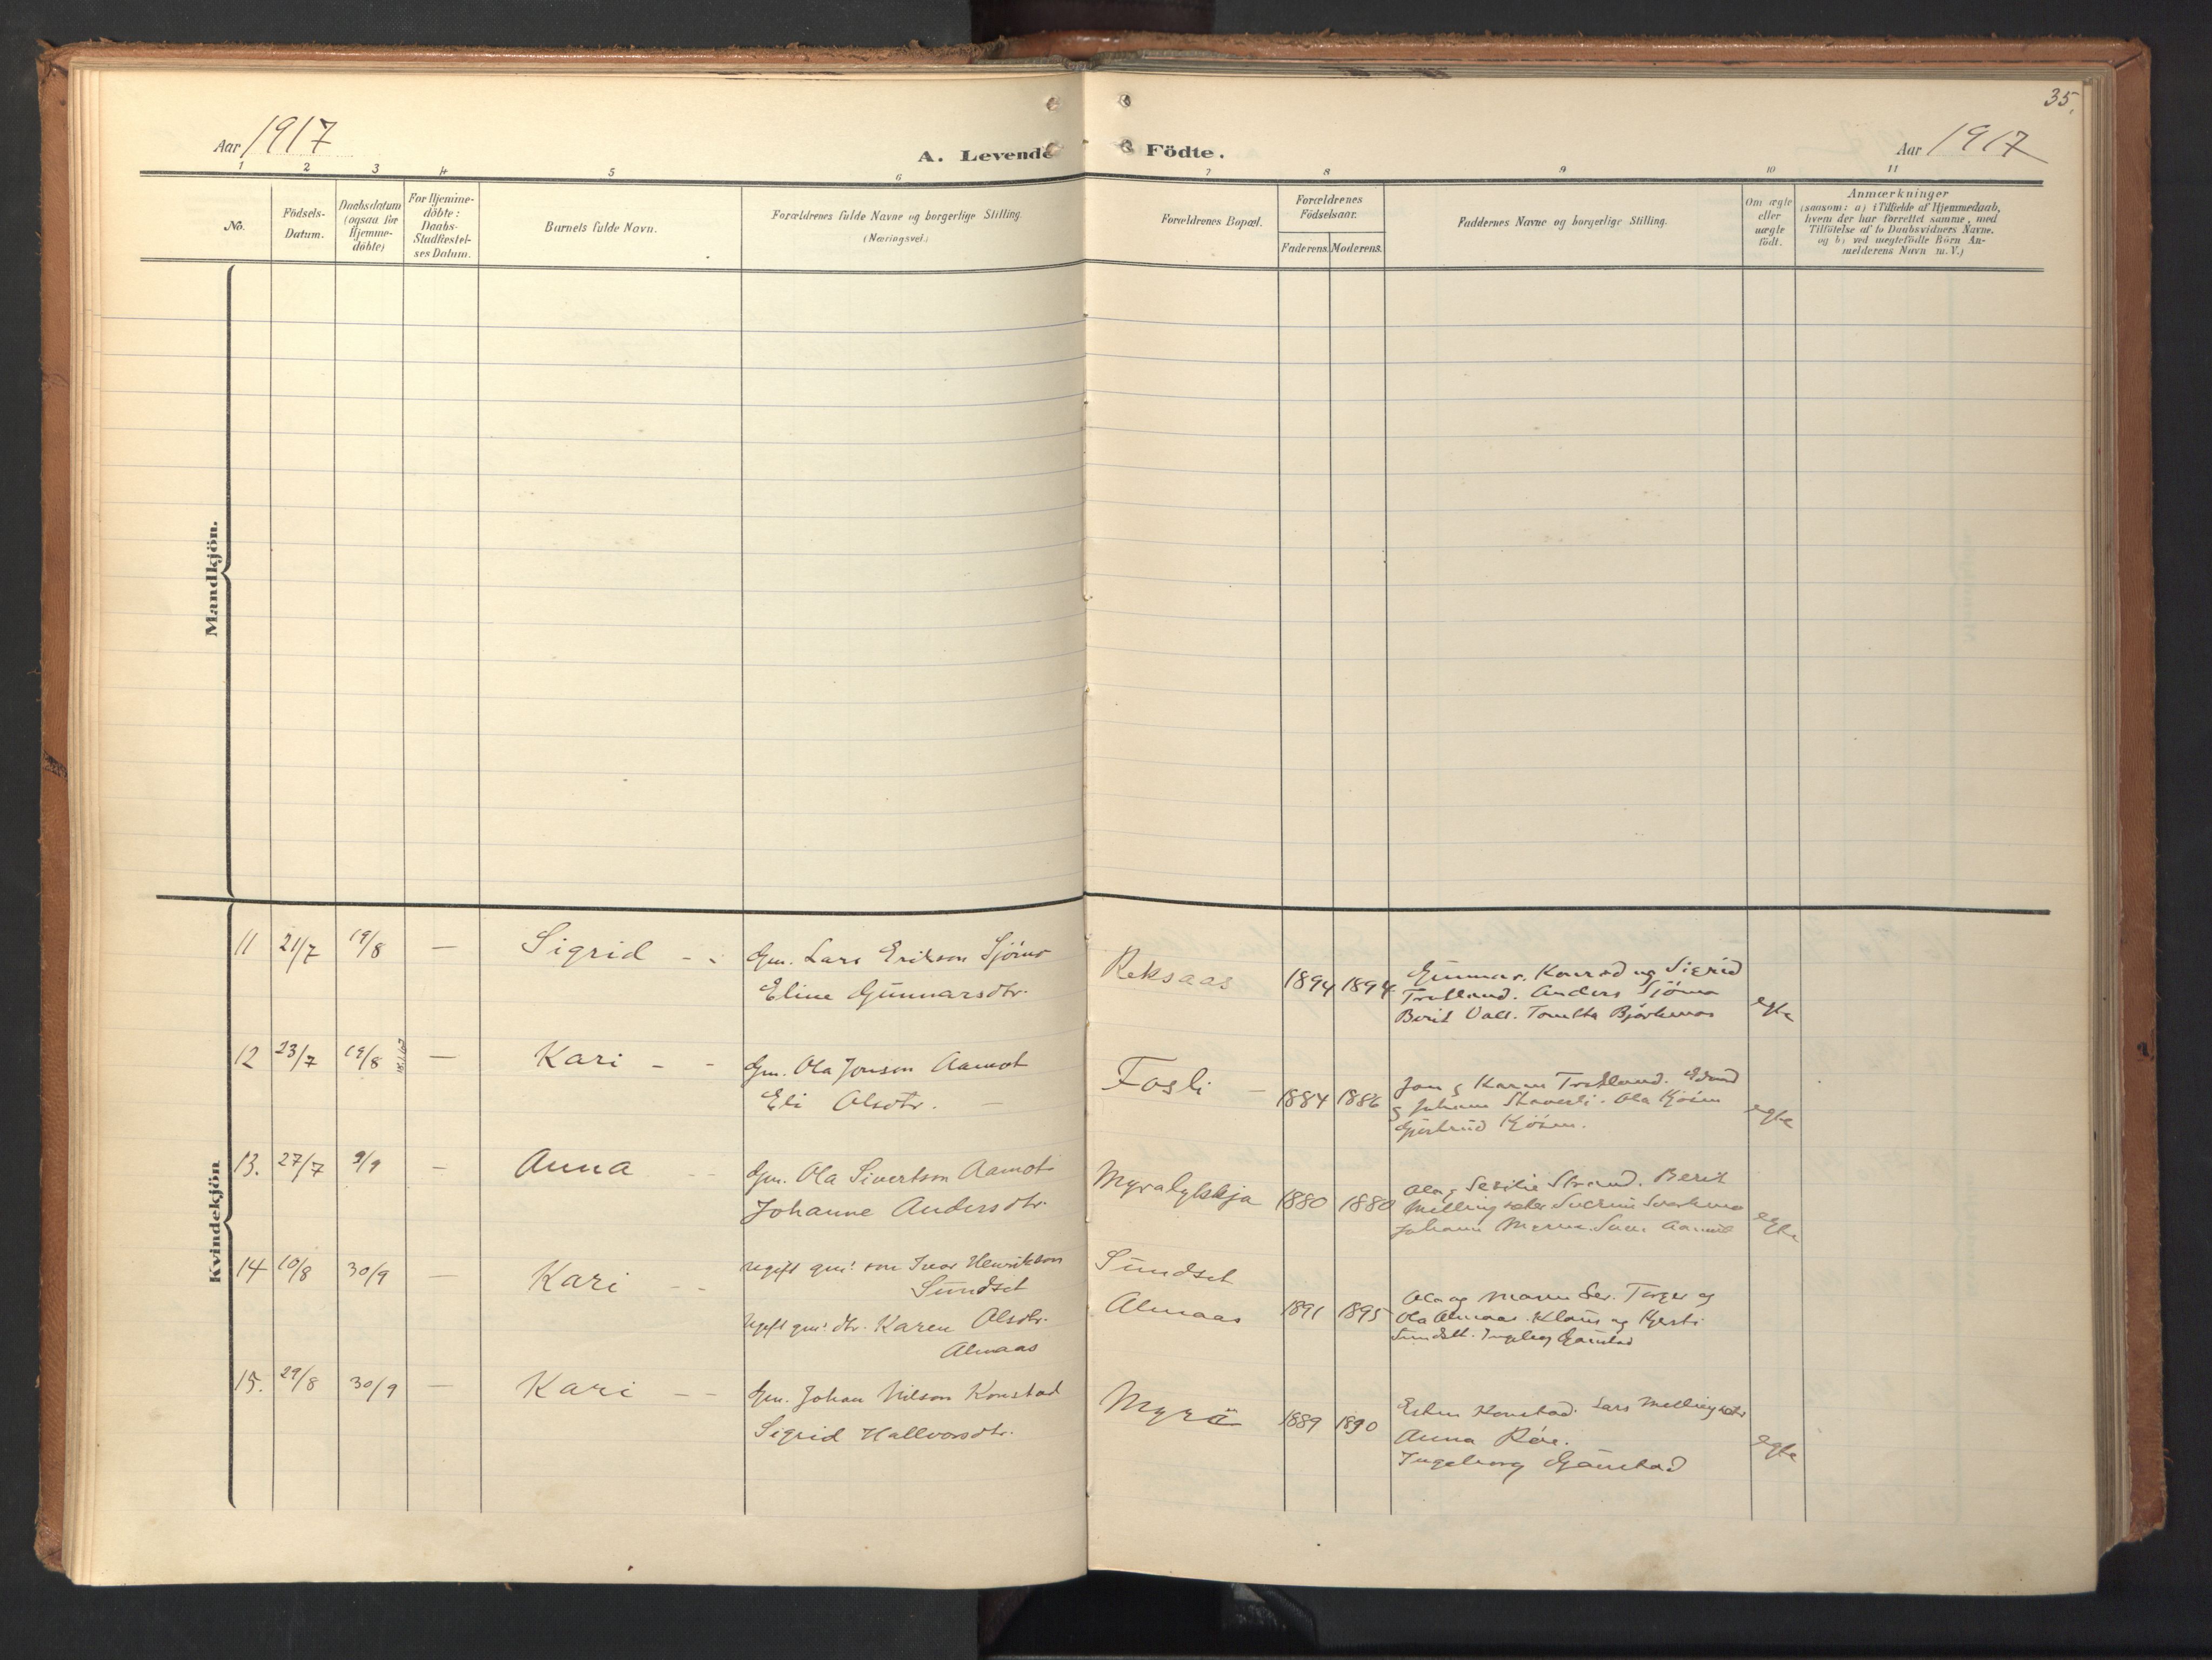 35.
Aar 1917
A. Levende Födte.
Aar 1917
1 2 3 4 5 6 7 8 9 10 11
No.
Födsels-
Datum.
Daabsdatum
(ogsaa for
Hjemme-
döbte)
For Hjemme-
döbte:
Daabs-
Stadfæstel-
ses Datum.
Barnets fulde Navn.
Forældrenes fulde Navne og borgerlige Stilling.
(Næringsvei.)
Forældrenes Bopæl.
Forældrenes
Födselsaar.
Faderens. Moderens.
Faddernes Navne og borgerlige Stilling.
Om ægte
eller
uægte
födt.
Anmærkninger
(saasom: a) i Tilfælde af Hjemmedaab,
hvem der har forrettet samme, med
Tilföielse af to Daabsvidners Navne.
og b) ved uægtefödte Börn An-
melderens Navn m. V.)
Mandkjön.
Kvindekjön.
11 21/7 19/8 — Sigrid - - Gm. Lars Erikson Sjömo
Eline Gunnarsdtr.
Reksaas 1894 1894
Gunnar, Konrad og Sigrid
Anders Sjömo
Berit Vall.
egte
12 23/7 19/8 — Kari - - Gm. Ola Jonson Aamot
Eli Olsdtr. —
Fosli — 1884 1886
Jon g Karen
g Johann Ola Kjösen
Gjertrud Kjösen.
egte
13. 27/7 9/9 — Anna - - Gm. Ola Sivertson Aamot
Johanne Andersdtr.
Myralykkja 1880 1880
Ola g Strand. Berit
Aamot
egte
14 10/8 30/9 — Kari - - ugift gm: son Ivar Henrikson
Sundset
ugift gm: dtr. Karen Olsdtr.
Almaas
Sundset
Almaas 1891 1895
Ola og Torger og
Ola Almaas. Klaus og Kjersti
Sundset. Ingeborg Gaustad
15. 29/8 30/9 — Kari - - Gm. Johan Nilson Konstad
Sigrid Hallvorsdtr.
Myra 1889 1890
Esten Konstad. Lars
Anna Röe.
Ingeborg Gaustad
egte